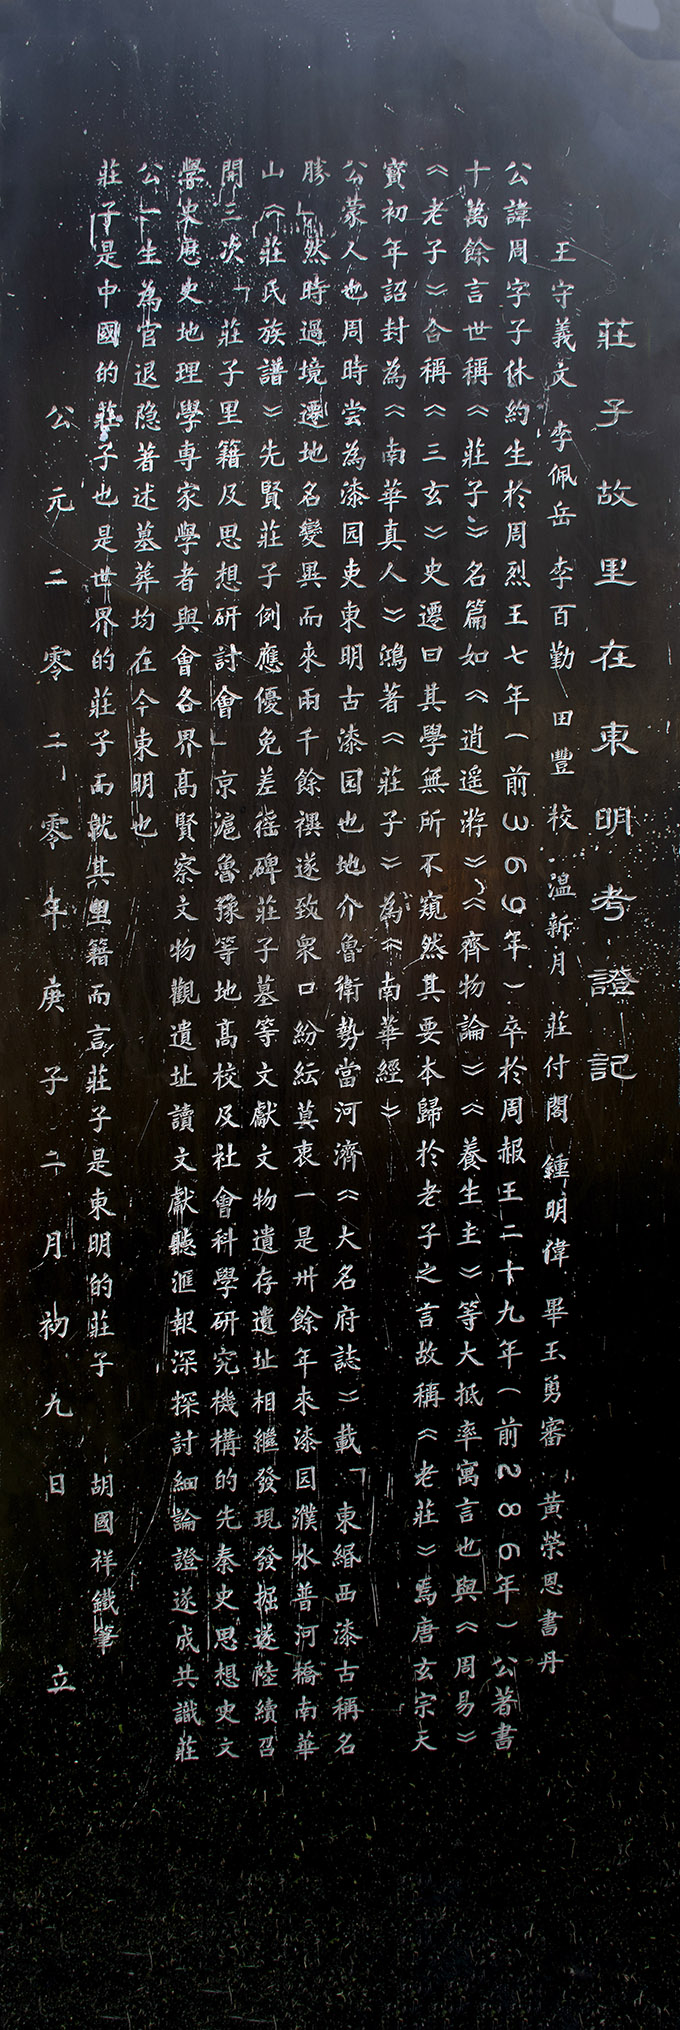 莊子故里在東明考證記
王守義文 李佩岳 李百勤 田豐 校 温新月 莊付閣 鍾明偉 畢玉勇審 黃荣恩書丹
公諱周字子休約生於周烈王七年(前369年)卒於周赧王二十九年(前286年)公著書
十萬餘言世稱《莊子》名篇如《逍遥游》《齊物論》《養生主》等大抵率寓言也與《周易》
《老子》合稱《三玄》史遷曰其學無所不窺然其要本歸於老子之言故稱《老莊》焉唐玄宗天
寳初年詔封為《南華真人》鴻著《莊子》為《南華經》
公蒙人也周時尝為漆园吏東明古漆园也地介魯衛勢當河濟《大名府誌》載「東緡西漆古稱名
勝」然時過境遷地名變異而來兩千餘禩遂致衆口紛紜莫衷一是卅餘年來漆园濮水普河橋南華
山《莊氏族譜》先賢莊子例應優免差徭碑莊子墓等文獻文物遺存遺址相繼發現發掘遂陸續召
開三次「莊子里籍及思想研討會」京滬魯豫等地高校及社會科學研究機構的先秦史思想史文
學史歷史地理學專家學者與會各界髙賢察文物觀遺址讀文獻聽滙報深探討細論證遂成共識莊
公一生為官退隐著述墓葬均在今東明也
莊子是中國的莊子也是世界的莊子而就其里籍而言莊子是東明的莊子 胡國祥鐵筆
公元二零二零年庚子二月初九日 立